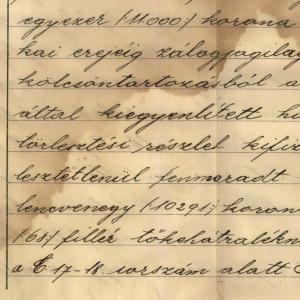 egyezer /:11.000:/ korona
kai erejéig zálogjogilag
kölcsöntartozásból a
által kiegyenlített
törlesztési részlet kifiz
lesztetlenül fenmaradt
lencvenegy /:10291:/ koron
/:68:/ fillér tőkehátralékn
a C 17-18. sorszám alatt